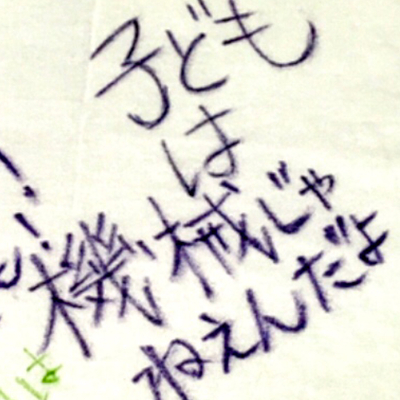 子ども
は
機械じゃ
ねえんだよ